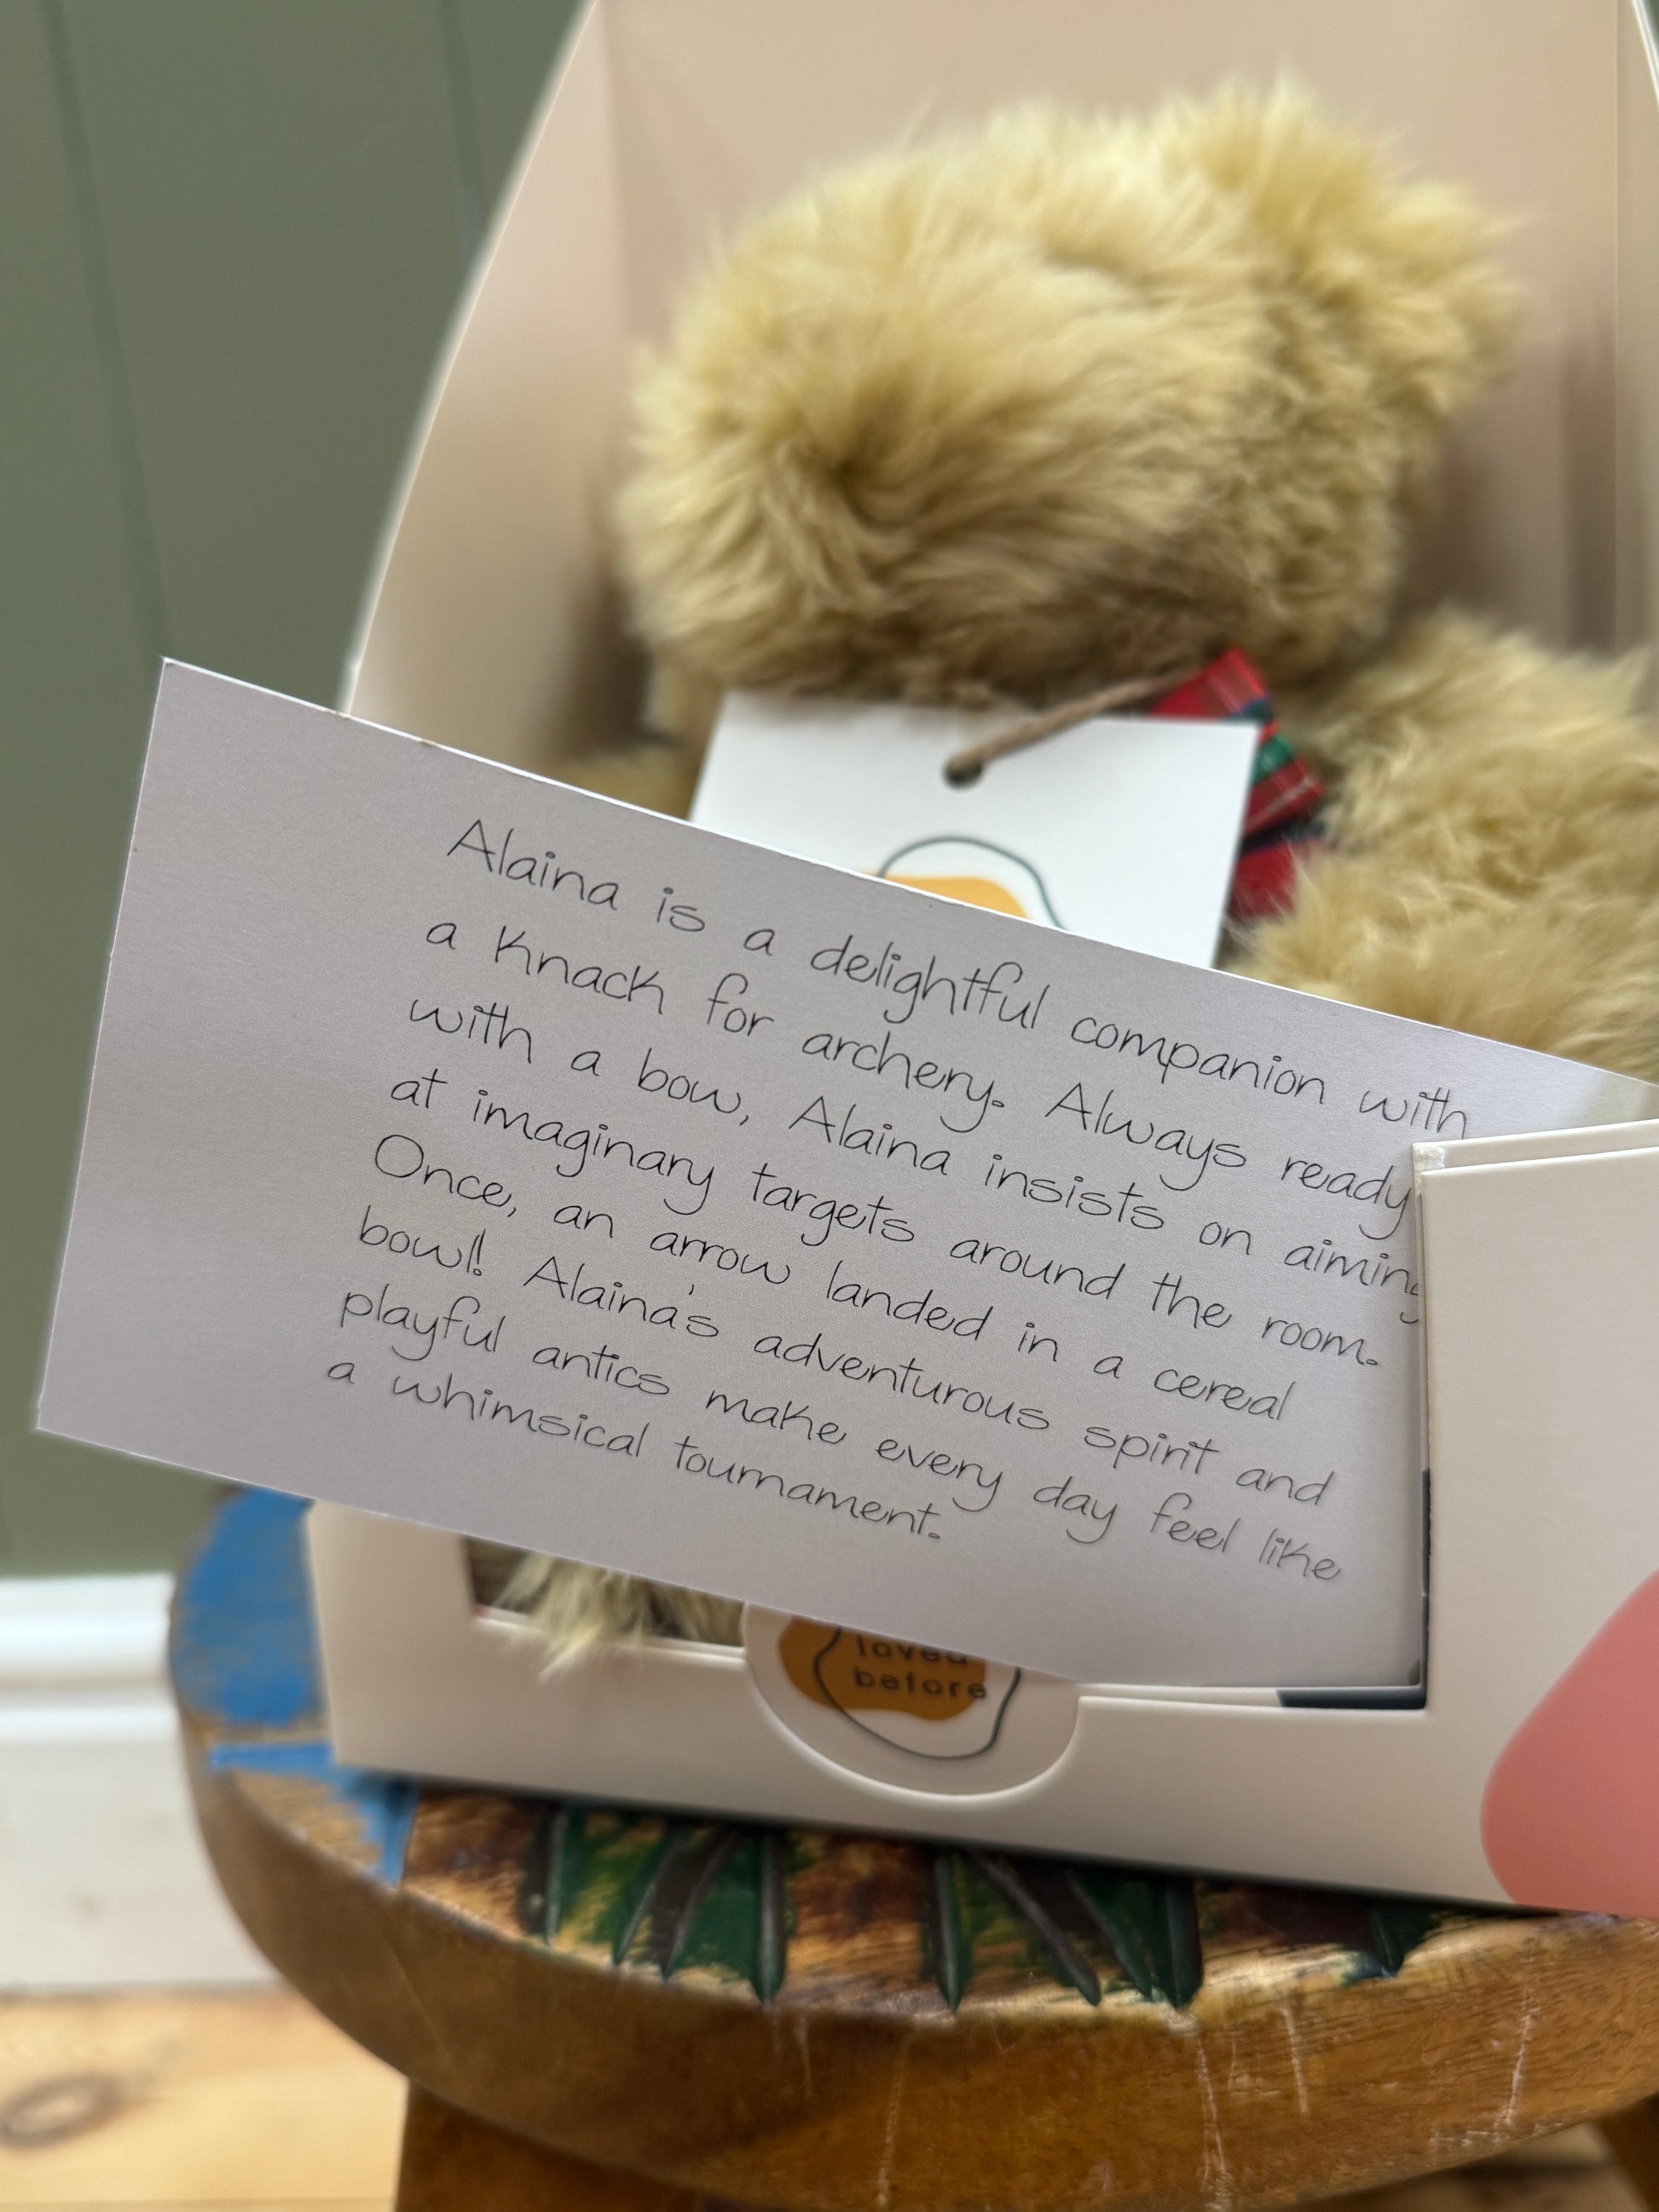 Alaina is a delightful companion with
a knack for archery. Always ready
with a bow, Alaina insists on aiming
at imaginary targets around the room.
Once, an arrow landed in a cereal
bowl! Alaina's adventurous spirit and
playful antics make every day feel like
a whimsical tournament.
loved
before